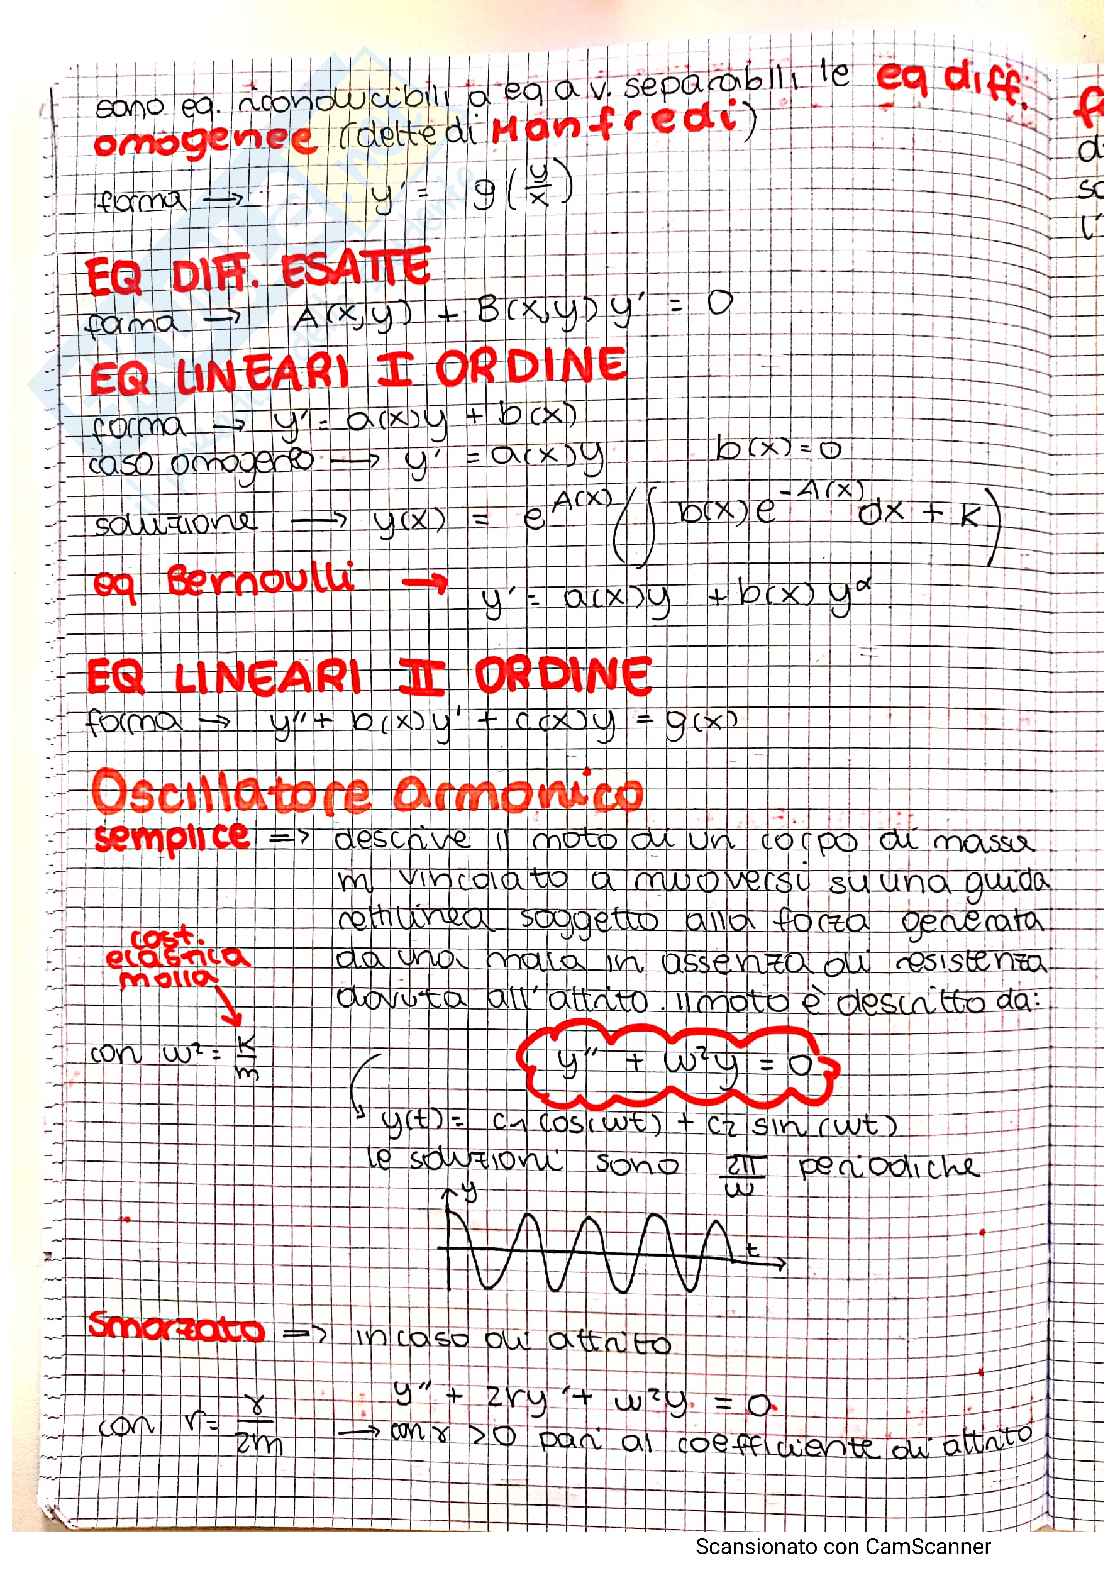 sono eq. riconducibili a eq a v. separabili le eq diff.
omogenee (dette di Manfredi)
forma → y' = g(y/x)
EQ DIFF. ESATTE
forma → A(x,y) + B(x,y) y' = 0
EQ LINEARI I ORDINE
forma → y' = a(x)y + b(x)
caso omogeneo → y' = a(x)y b(x)=0
soluzione → y(x) = e^A(x) (∫ b(x)e^-A(x) dx + k)
eq Bernoulli → y' = a(x)y + b(x)y^α
EQ LINEARI II ORDINE
forma → y'' + b(x)y' + c(x)y = g(x)
Oscillatore armonico
semplice => descrive il moto di un corpo di massa
m vincolato a muoversi su una guida
rettilinea soggetto alla forza generata
da una molla in assenza di resistenza
dovuta all'attrito. Il moto è descritto da:
cost.
elastica
molla
con w² = k/m
y'' + w²y = 0
y(t) = c1 cos(wt) + c2 sin(wt)
le soluzioni sono 2π/w periodiche
y
t
Smorzato => in caso di attrito
y'' + 2ry' + w²y = 0
con r = γ/2m → con γ > 0 pari al coefficiente di attrito
Scansionato con CamScanner